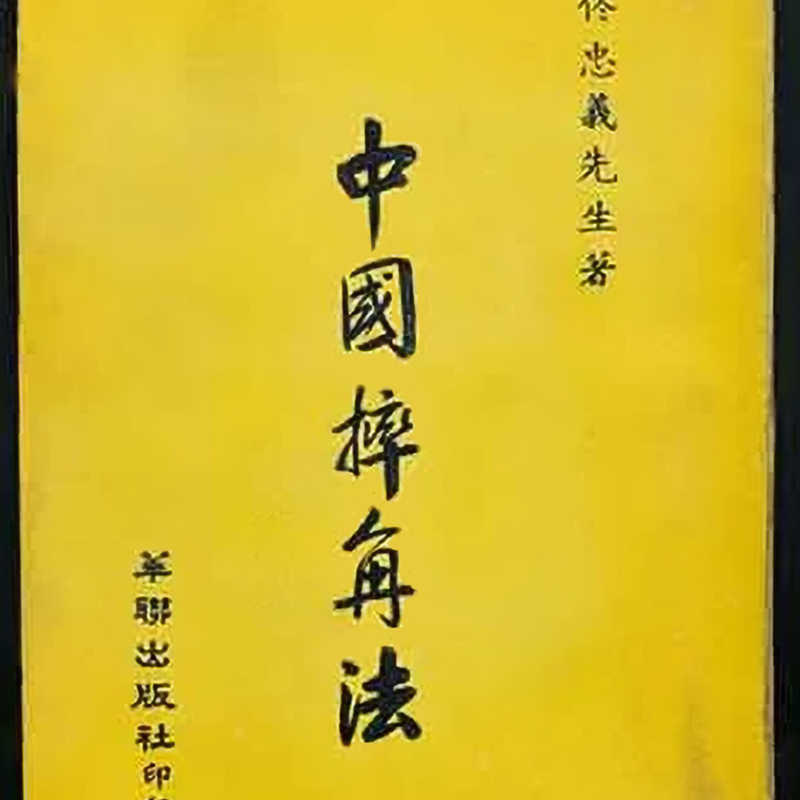 佟忠義先生著
中國摔角法
華聯出版社印